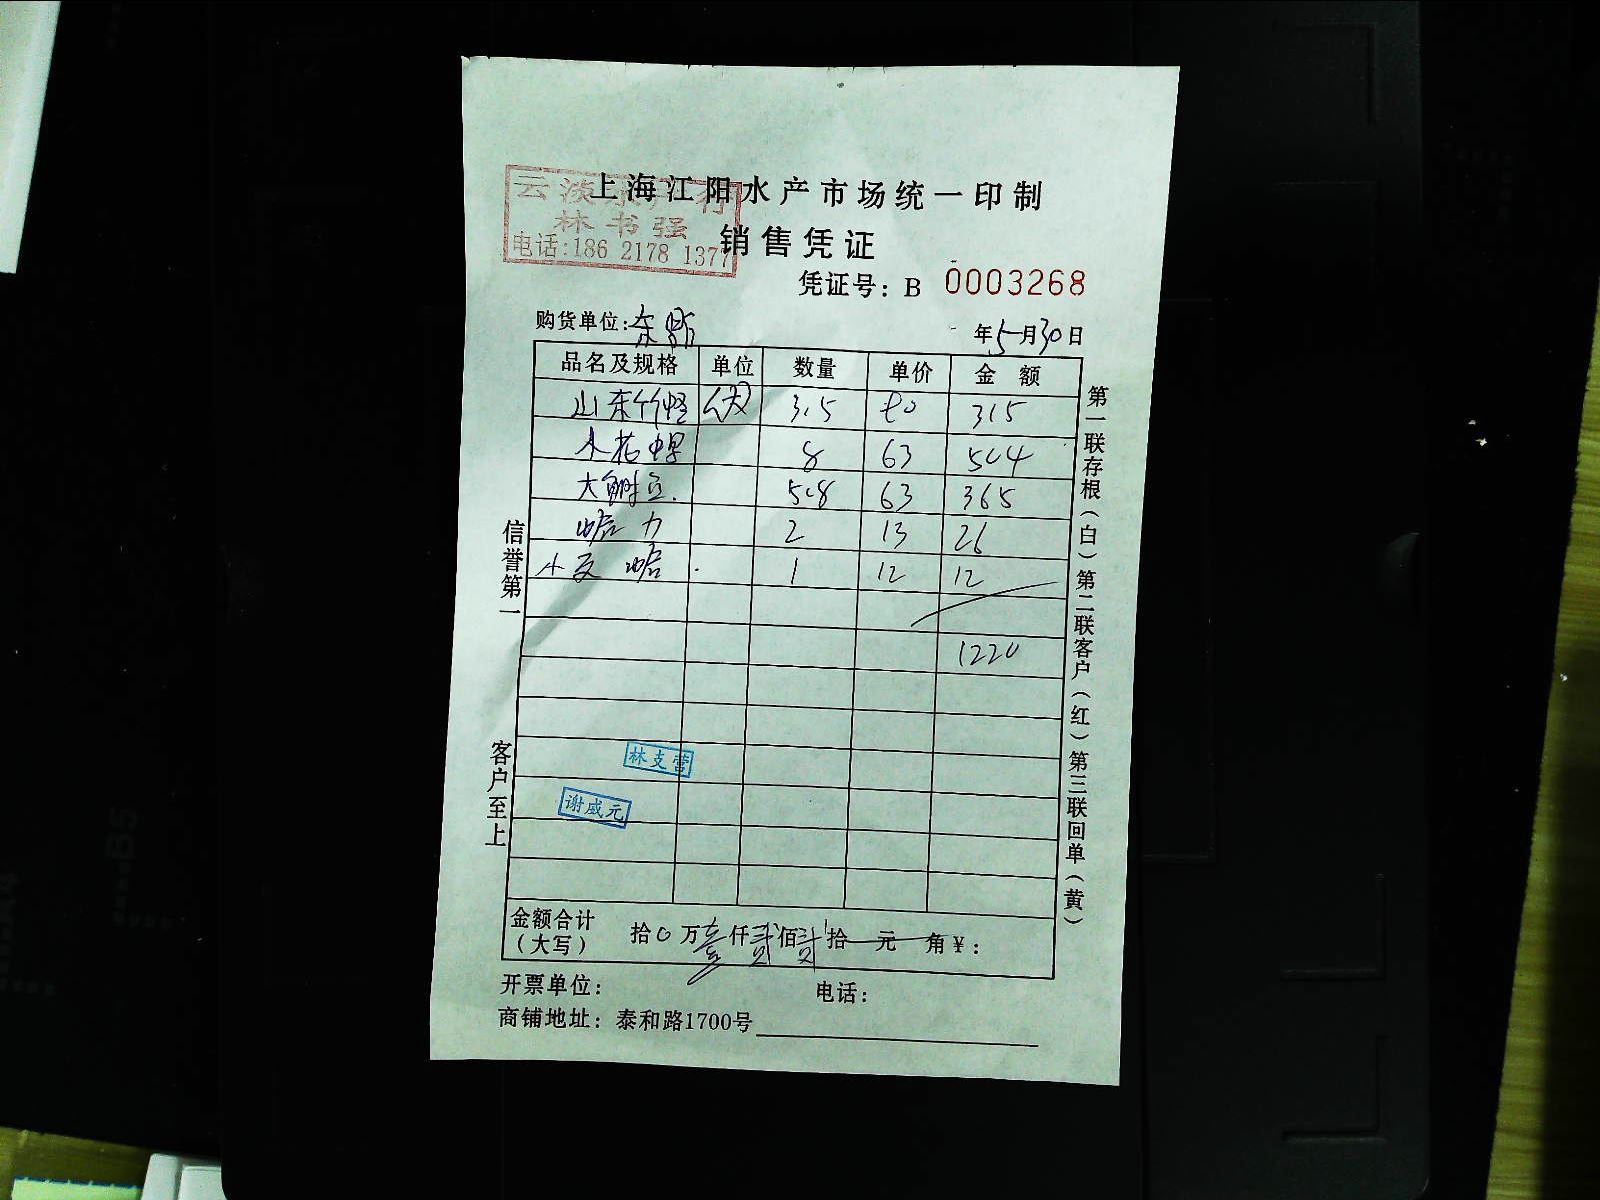 上海江阳水产市场统一印制
云淡水产行
林书强
电话:186 2178 1377
销售凭证
凭证号: B 0003268
购货单位:东
年5月30日
品名及规格 单位 数量 单价 金额
山东竹蛏 3.5 90 315
花螺 8 63 504
大 5.8 63 365
蛤力 2 13 26
小 蛤 1 12 12
1220
林支营
谢咸元
金额合计(大写) 拾0万壹仟贰佰贰拾元角¥:
开票单位: 电话:
商铺地址: 泰和路1700号
信誉第一
客户至上
第一联存根(白)第二联客户(红)第三联回单(黄)